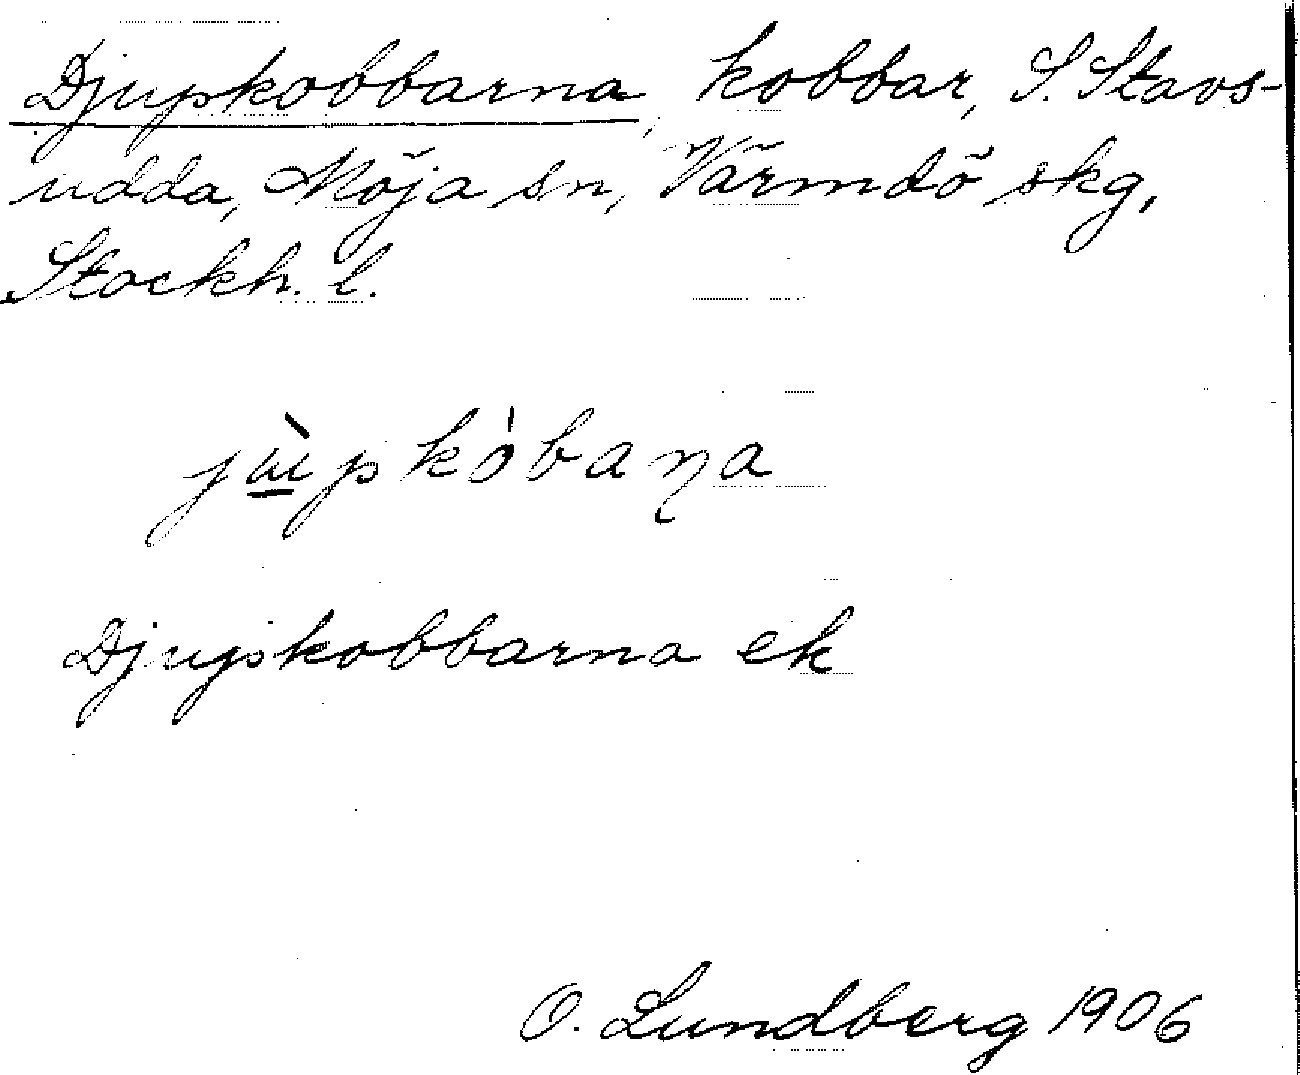 Djupkobbarna, kobbar, S. Stavs-
udda, Möja sn, Värmdö skg,
Stockh. l.
jɯ̲̀pkȯ́baṇa
Djupkobbarna ek
O. Lundberg 1906